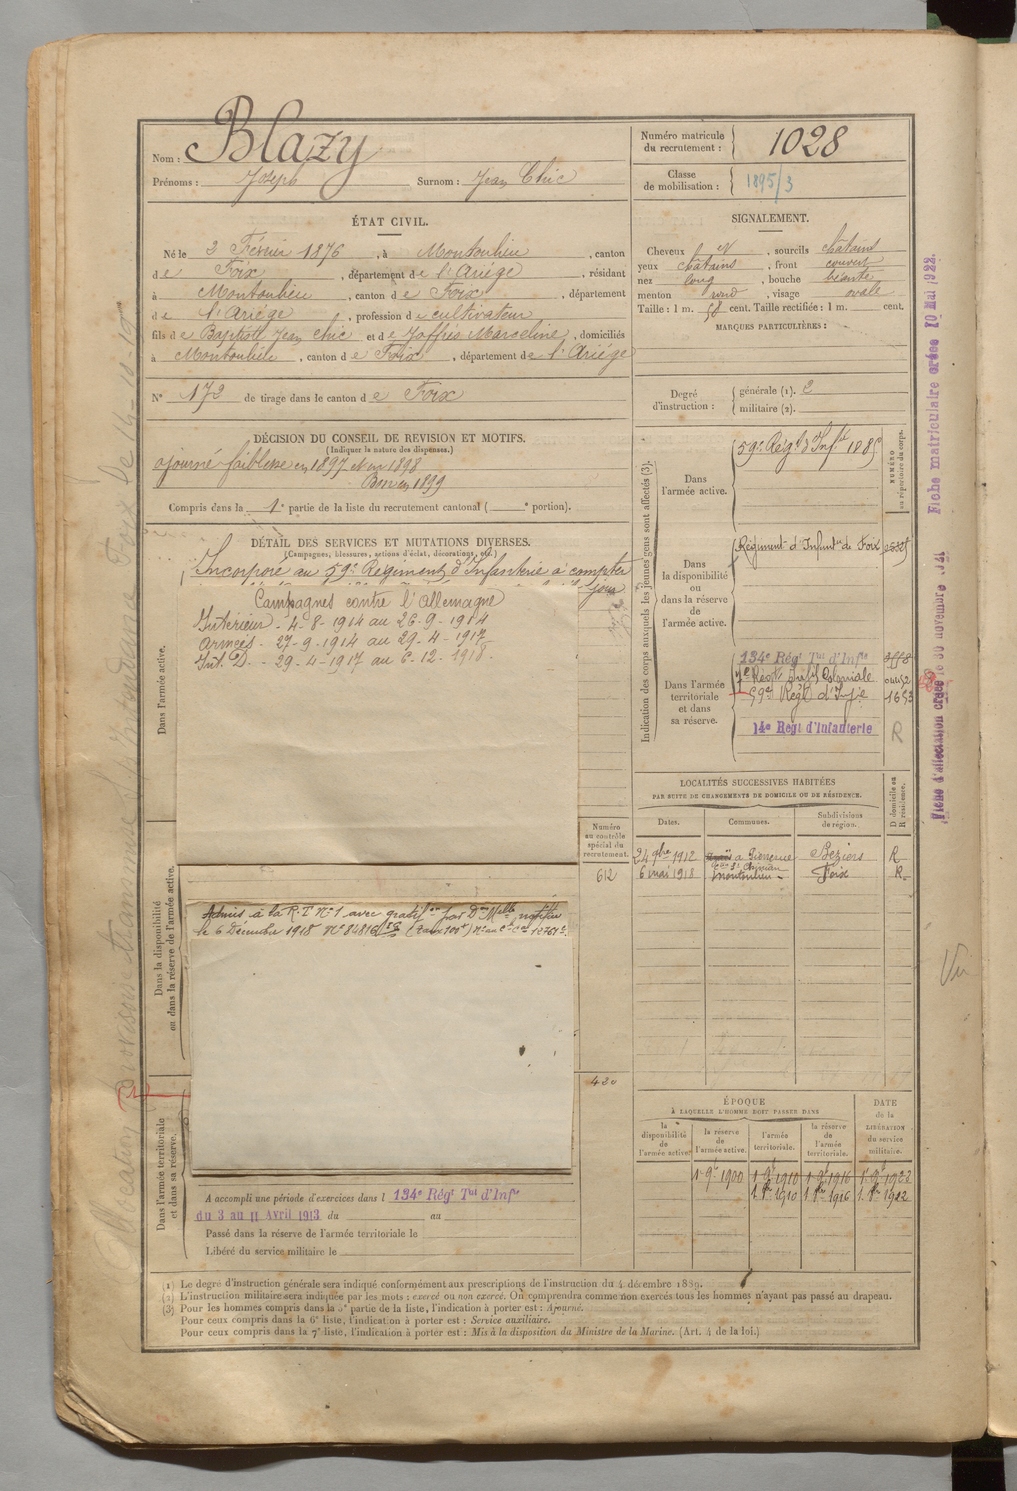 Nom : Blazy
Prénoms : Joseph Surnom : Jean Chic
Numéro matricule du recrutement : 1028
Classe de mobilisation : 1895/3
ÉTAT CIVIL.
Né le 2 Février 1876, à Montoulieu, canton
de Foix, département de l'Ariége, résidant
à Montoulieu, canton de Foix, département
de l'Ariége, profession de cultivateur
fils de Baptiste Jean Chic et de Joffrès Marceline, domiciliés
à Montoulieu, canton de Foix, département de l'Ariége
N° 172 de tirage dans le canton de Foix
SIGNALEMENT.
Cheveux et, sourcils châtains
yeux châtains, front couvert
nez long, bouche béante
menton rond, visage ovale
Taille : 1 m. 58 cent. Taille rectifiée : 1 m. cent.
MARQUES PARTICULIÈRES :
Degré d'instruction : générale (1). 2
militaire (2).
DÉCISION DU CONSEIL DE REVISION ET MOTIFS.
(Indiquer la nature des dispenses.)
ajourné faiblesse en 1897 et en 1898
Bon en 1899
Compris dans la 1e partie de la liste du recrutement cantonal ( e portion).
DÉTAIL DES SERVICES ET MUTATIONS DIVERSES.
(Campagnes, blessures, actions d'éclat, décorations, etc.)
Incorporé au 59e Régiment d'Infanterie à compter
Campagnes contre l'Allemagne
Intérieur - 4-8-1914 au 26-9-1914
Armées - 27-9-1914 au 29-4-1917
Int. D. - 29-4-1917 au 6-12-1918.
Dans l'armée active.
Numéro au contrôle spécial du recrutement.
612
Dans la disponibilité ou dans la réserve de l'armée active.
Admis à la R.T. N°1 avec gratif.on par D.on Mlle notifiée
le 6 Décembre 1918 N° 84816
420
Dans l'armée territoriale et dans sa réserve.
A accompli une période d'exercices dans l 134e Régt Tal d'Infie
du 3 au 11 Avril 1913 du au
Passé dans la réserve de l'armée territoriale le
Libéré du service militaire le
Indication des corps auxquels les jeunes gens sont affectés (3).
NUMÉRO au répertoire du corps.
Dans l'armée active.
59e Régt d'Infie
Dans la disponibilité ou dans la réserve de l'armée active.
Régiment d'Infanie de Foix
Dans l'armée territoriale et dans sa réserve.
134e Régt Tal d'Infie
7e Régt Infie Coloniale
59e Régt d'Infie 1653
14e Régt d'Infanterie R
LOCALITÉS SUCCESSIVES HABITÉES
PAR SUITE DE CHANGEMENTS DE DOMICILE OU DE RÉSIDENCE.
Dates. Communes. Subdivisions de région. D domicile ou R résidence.
24 9bre 1912 Béziers R
6 mai 1918 Montoulieu Foix R.
ÉPOQUE
À LAQUELLE L'HOMME DOIT PASSER DANS
DATE de la LIBÉRATION du service militaire.
la disponibilité de l'armée active.
la réserve de l'armée active.
l'armée territoriale.
la réserve de l'armée territoriale.
1 9e 1900 1 9e 1910 1 9e 1916 1 9e 1923
(1) Le degré d'instruction générale sera indiqué conformément aux prescriptions de l'instruction du 4 décembre 1889.
(2) L'instruction militaire sera indiquée par les mots : exercé ou non exercé. On comprendra comme non exercés tous les hommes n'ayant pas passé au drapeau.
(3) Pour les hommes compris dans la 5e partie de la liste, l'indication à porter est : Ajourné.
Pour ceux compris dans la 6e liste, l'indication à porter est : Service auxiliaire.
Pour ceux compris dans la 7e liste, l'indication à porter est : Mis à la disposition du Ministre de la Marine. (Art. 4 de la loi.)
Fiche matriculaire créée 10 Mai 1922.
Fiche d'affectation créée le 30 novembre
Vu